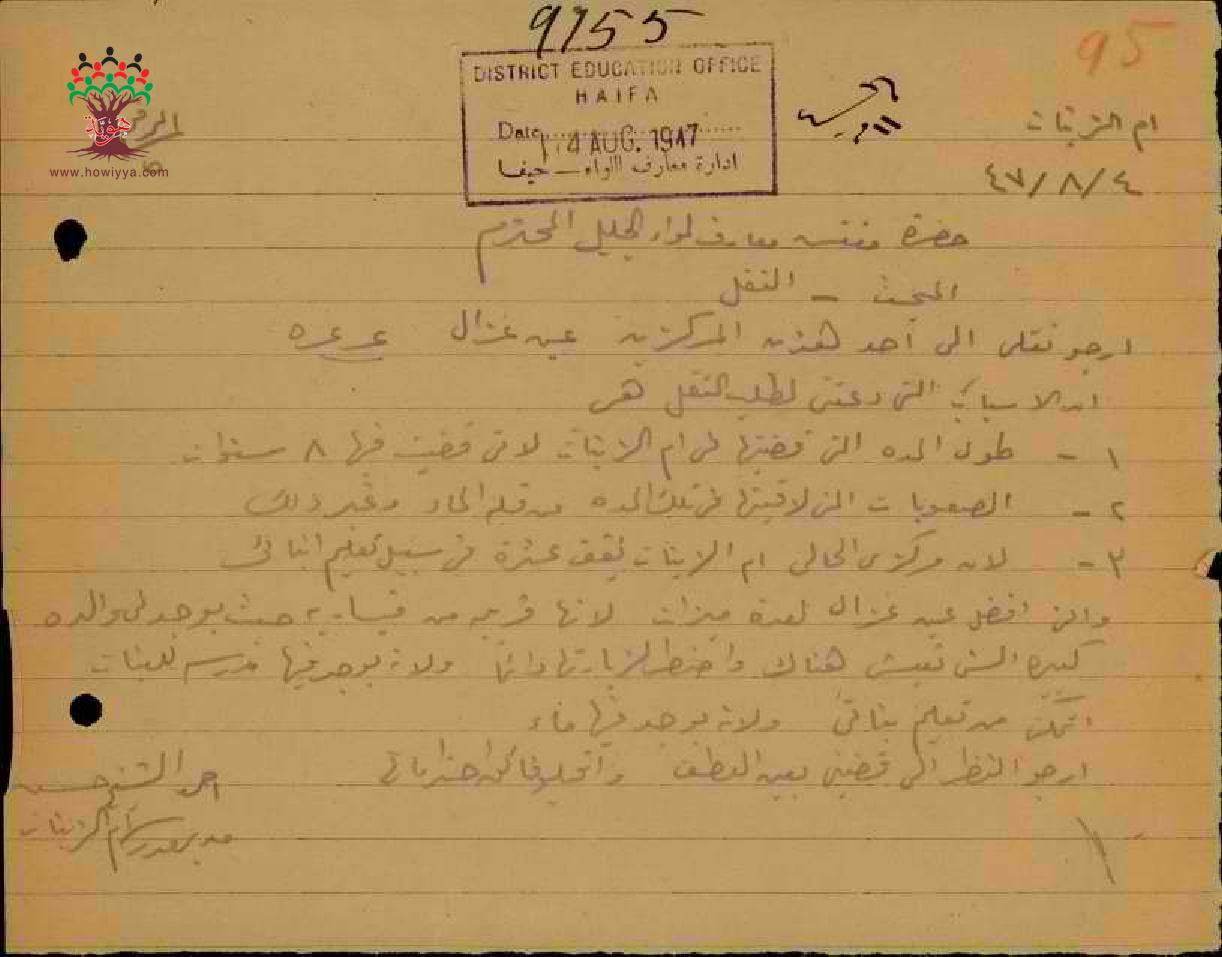 9155
95
DISTRICT EDUCATION OFFICE
HAIFA
Date 4 AUG. 1947
ادارة معارف اللواء – حيفا
هوية
www.howiyya.com
ام الزينات
٤٧/٨/٤
حضرة مفتش معارف لواء الجليل المحترم
المبحث – النقل
ارجو نقلي الى أحد هذين المركزين عين غزال عرعره
ان الاسباب التي دعتني لطلب النقل هي
١ – طول المده التي قضيتها في ام الزينات لاني قضيت فيها ٨ سنوات
٢ – الصعوبات التي لاقيتها في تلك المده من قلة الماء وغير ذلك
٣ – لان مركزي الحالي ام الزينات يقف عثرة في سبيل تعليم ابنائي
واني افضل عين غزال لعدة ميزات لانها قريبه من قيساريه حيث يوجد لي والده
كبيرة السن تعيش هناك واضطر لزيارتها دائماً ولانه يوجد فيها مدرسه للبنات
اتمكن من تعليم بناتي ولانه يوجد فيها ماء
ارجو النظر الى قضيتي بعين العطف واقبلوا فائق احترماتي
احمد الشيخ حسن
مدير مدرسة ام الزينات